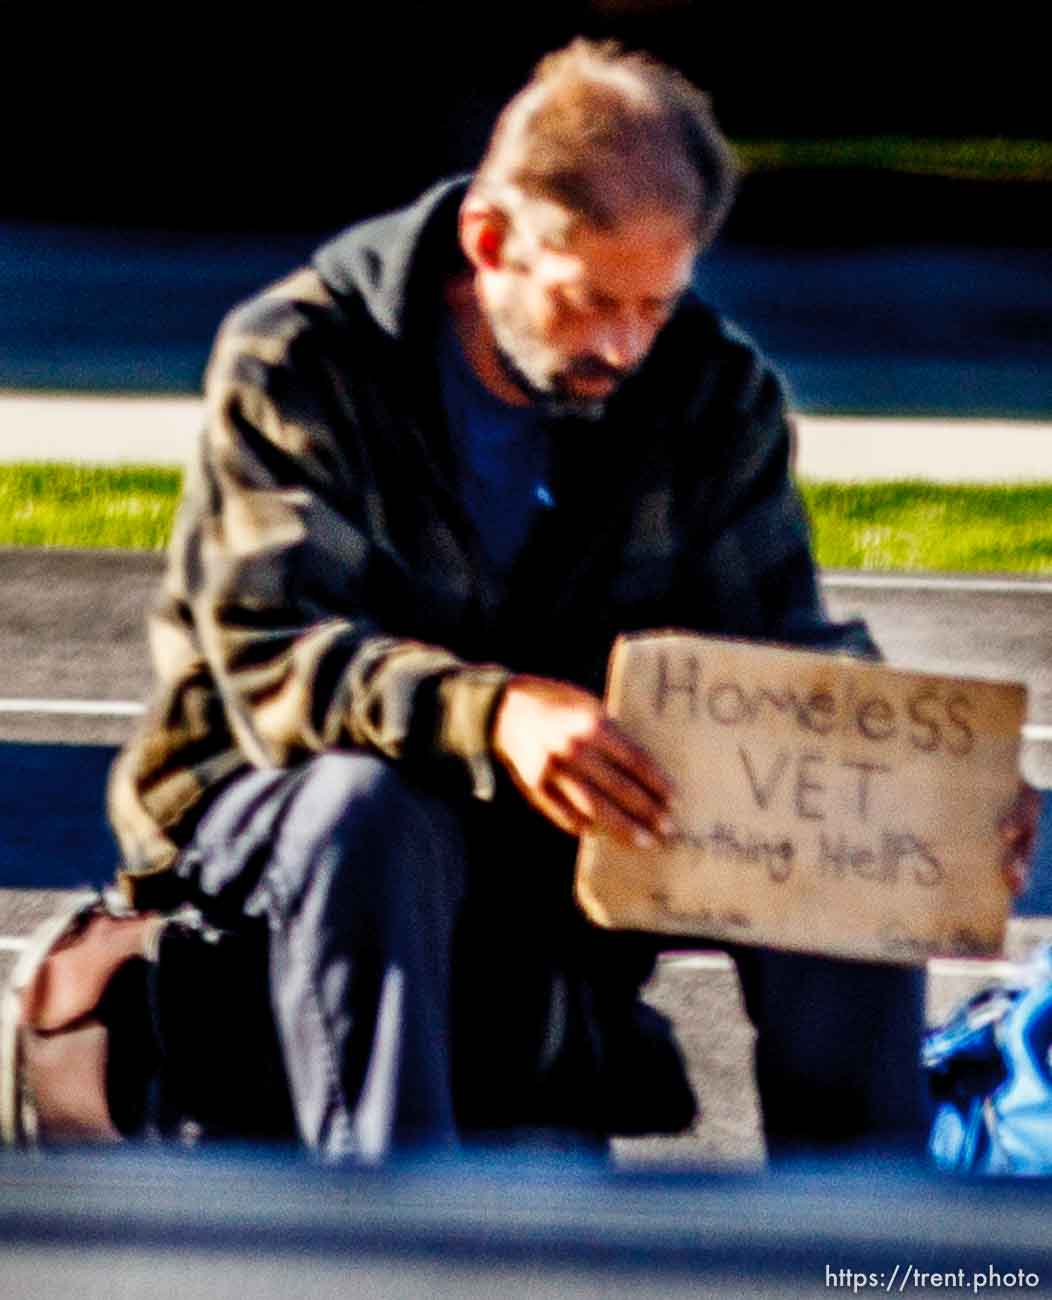 Homeless
VET
Anything Helps
https://trent.photo